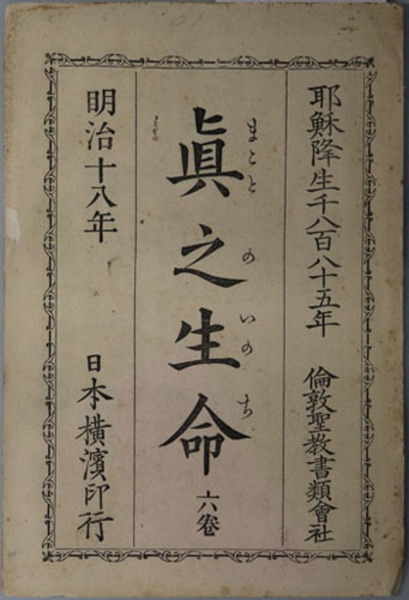 耶穌降生千八百八十五年 倫敦聖教書類會社
眞之生命 六卷
まことのいのち
明治十八年 日本橫濱印行